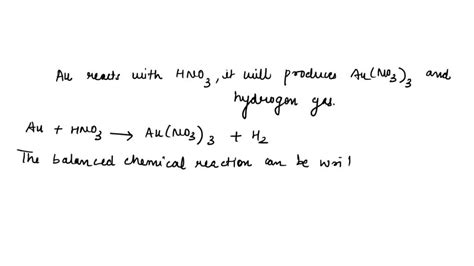 Au reacts with HNO3, it will produces Au(NO3)3 and
hydrogen gas.
Au + HNO3 → Au(NO3)3 + H2
The balanced chemical reaction can be wri